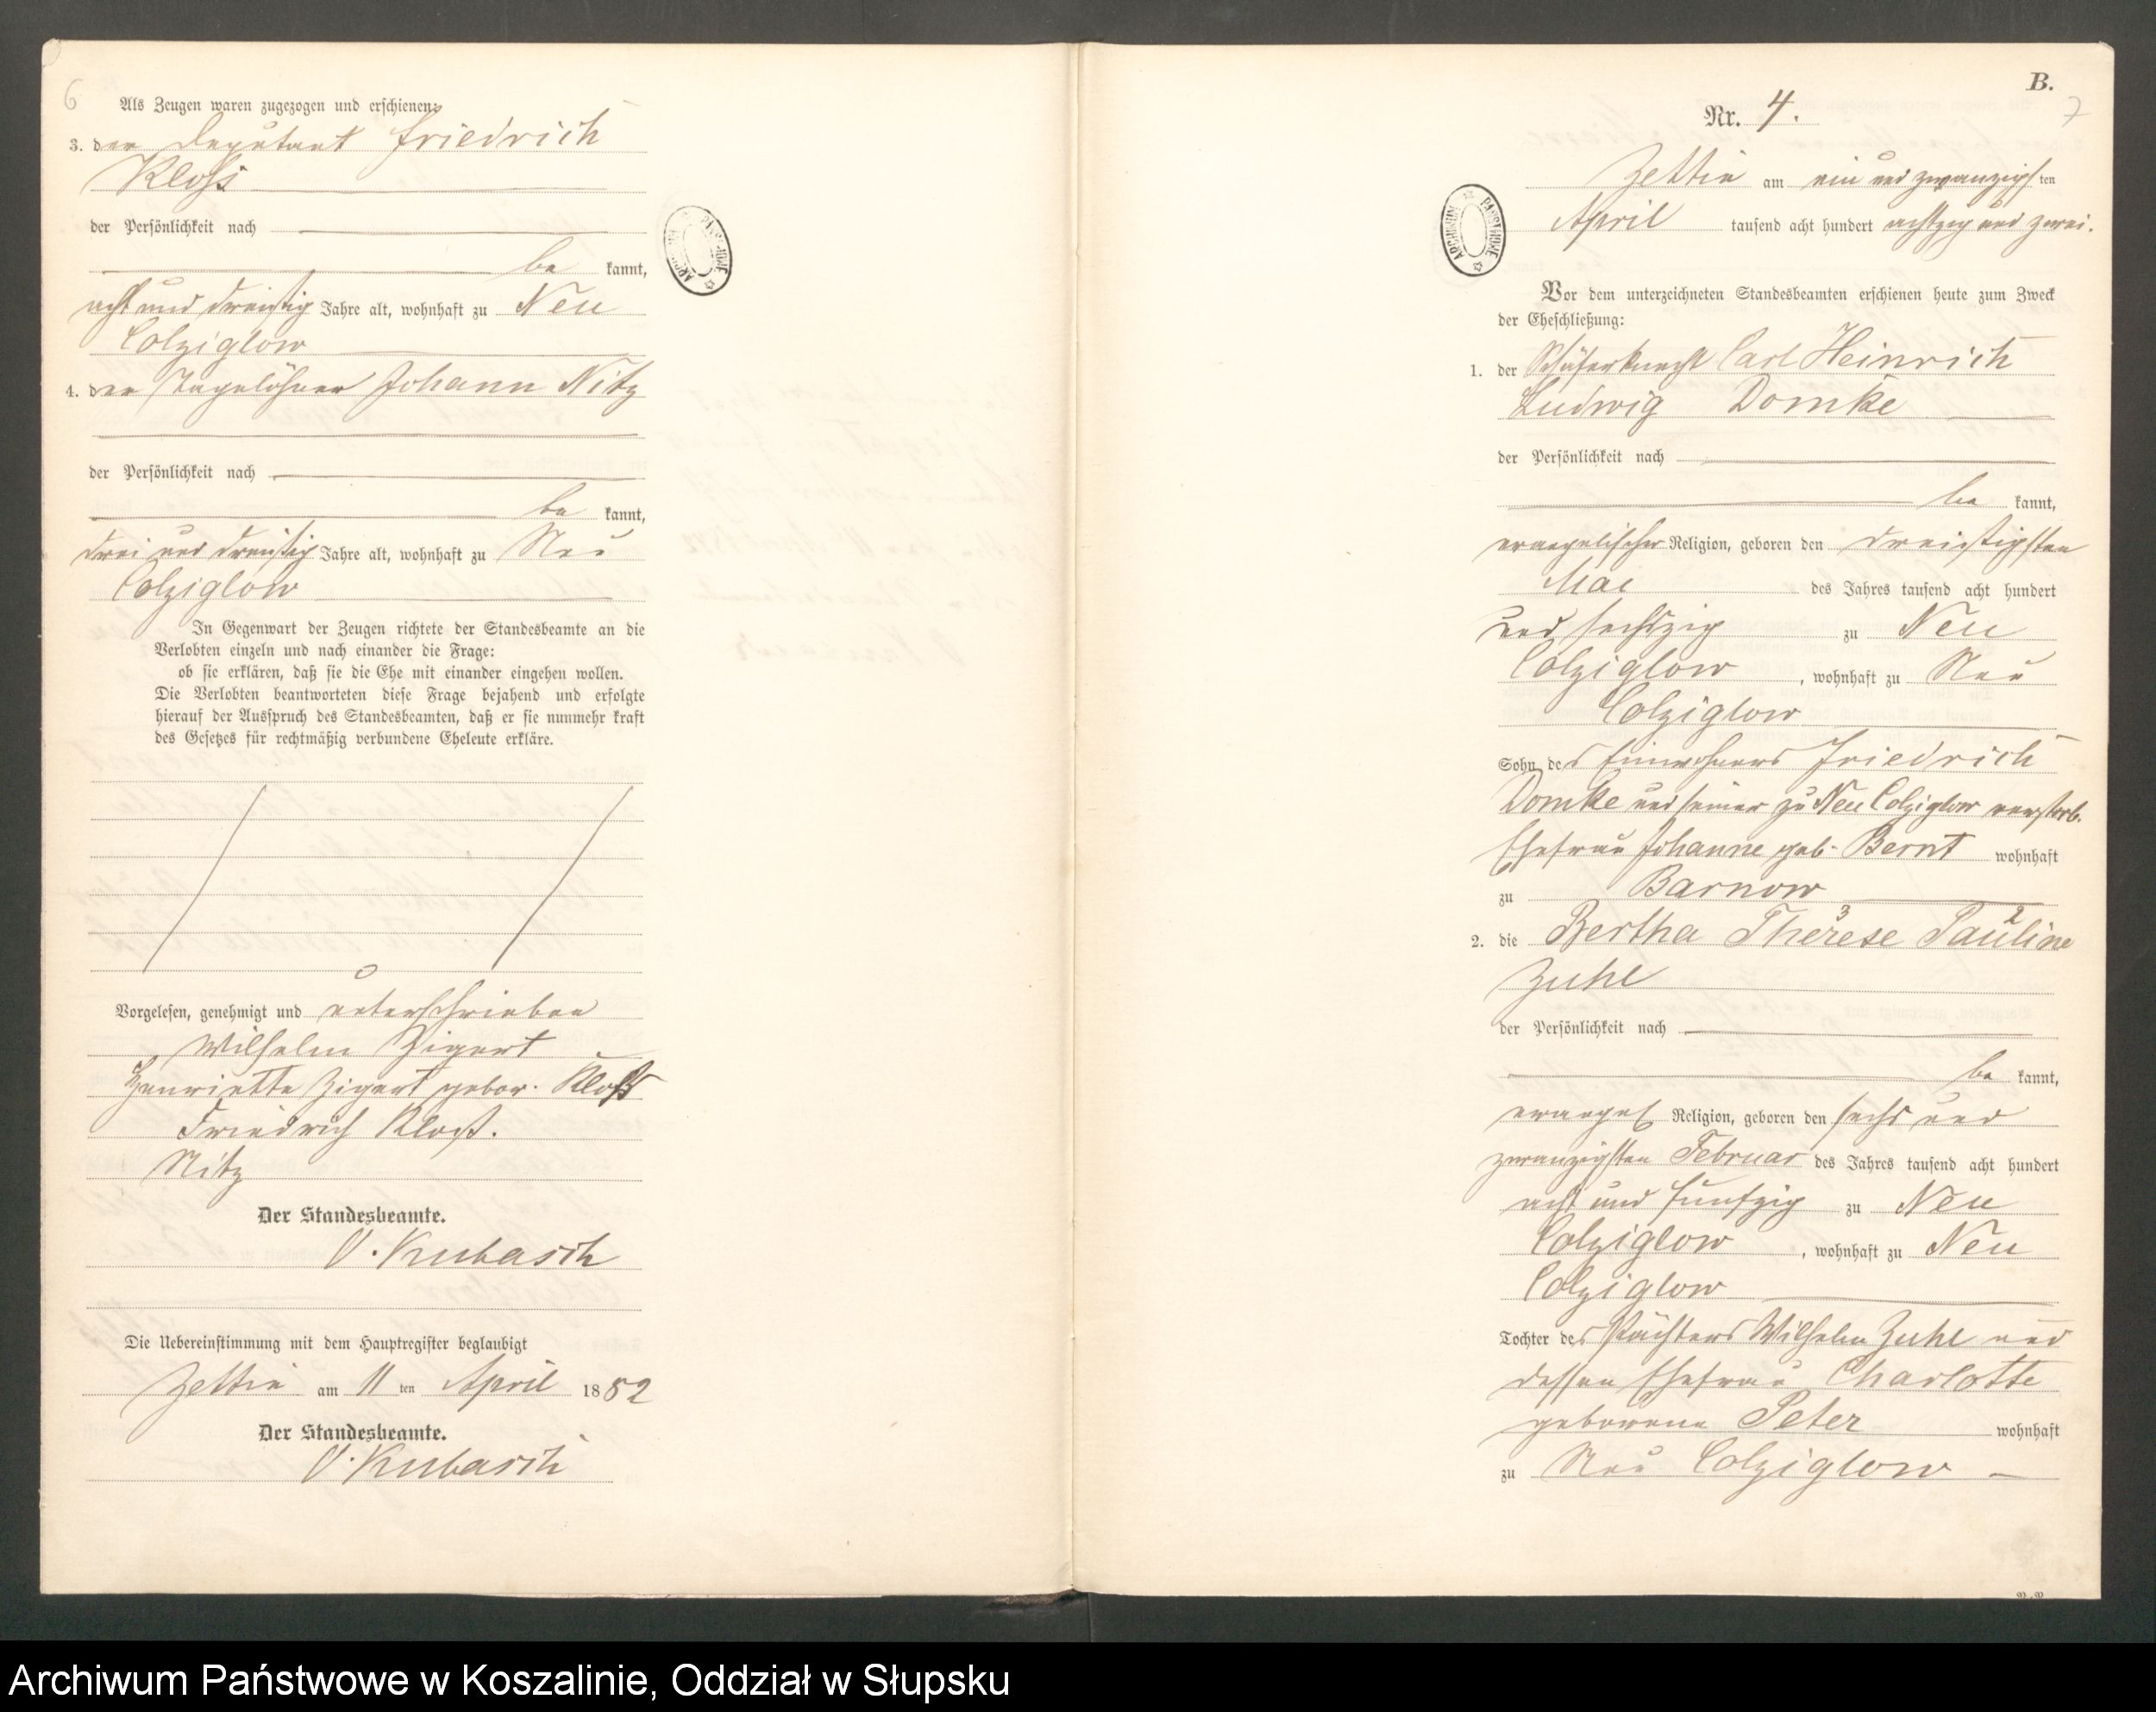 6
Als Zeugen waren zugezogen und erschienen:
3. der Deputant Friedrich
Kloß
der Persönlichkeit nach
be kannt,
acht und dreißig Jahre alt, wohnhaft zu Neu
Colziglow
4. der Tagelöhner Johann Nitz
der Persönlichkeit nach
be kannt,
drei und dreißig Jahre alt, wohnhaft zu Neu
Colziglow
In Gegenwart der Zeugen richtete der Standesbeamte an die
Verlobten einzeln und nach einander die Frage:
ob sie erklären, daß sie die Ehe mit einander eingehen wollen.
Die Verlobten beantworteten diese Frage bejahend und erfolgte
hierauf der Ausspruch des Standesbeamten, daß er sie nunmehr kraft
des Gesetzes für rechtmäßig verbundene Eheleute erkläre.
Vorgelesen, genehmigt und unterschrieben
Wilhelm Zigert
Henriette Zigert gebor. Kloß
Friedrich Kloß.
Nitz
Der Standesbeamte.
V. Kubasch
Die Uebereinstimmung mit dem Hauptregister beglaubigt
Zettin am 11 ten April 1882
Der Standesbeamte.
V. Kubasch
ARCHIWUM PAŃSTWOWE
B.
7
Nr. 4.
Zettin am ein und zwanzigs ten
April tausend acht hundert achtzig und zwei.
ARCHIWUM PAŃSTWOWE
Vor dem unterzeichneten Standesbeamten erschienen heute zum Zweck
der Eheschließung:
1. der Schäferknecht Carl Heinrich
Ludwig Domke
der Persönlichkeit nach
be kannt,
evangelischer Religion, geboren den dreißigsten
Mai des Jahres tausend acht hundert
und sechszig zu Neu
Colziglow, wohnhaft zu Neu
Colziglow
Sohn des Einwohners Friedrich
Domke und seiner zu Neu Colziglow verstorb.
Ehefrau Johanne geb. Bernt wohnhaft
zu Barnow
3 2
2. die Bertha Therese Pauline
Zuhl
der Persönlichkeit nach
be kannt,
evangel. Religion, geboren den sechs und
zwanzigsten Februar des Jahres tausend acht hundert
acht und fünfzig zu Neu
Colziglow, wohnhaft zu Neu
Colziglow
Tochter des Pächters Wilhelm Zuhl und
dessen Ehefrau Charlotte
geborene Peter wohnhaft
zu Neu Colziglow
Archiwum Państwowe w Koszalinie, Oddział w Słupsku